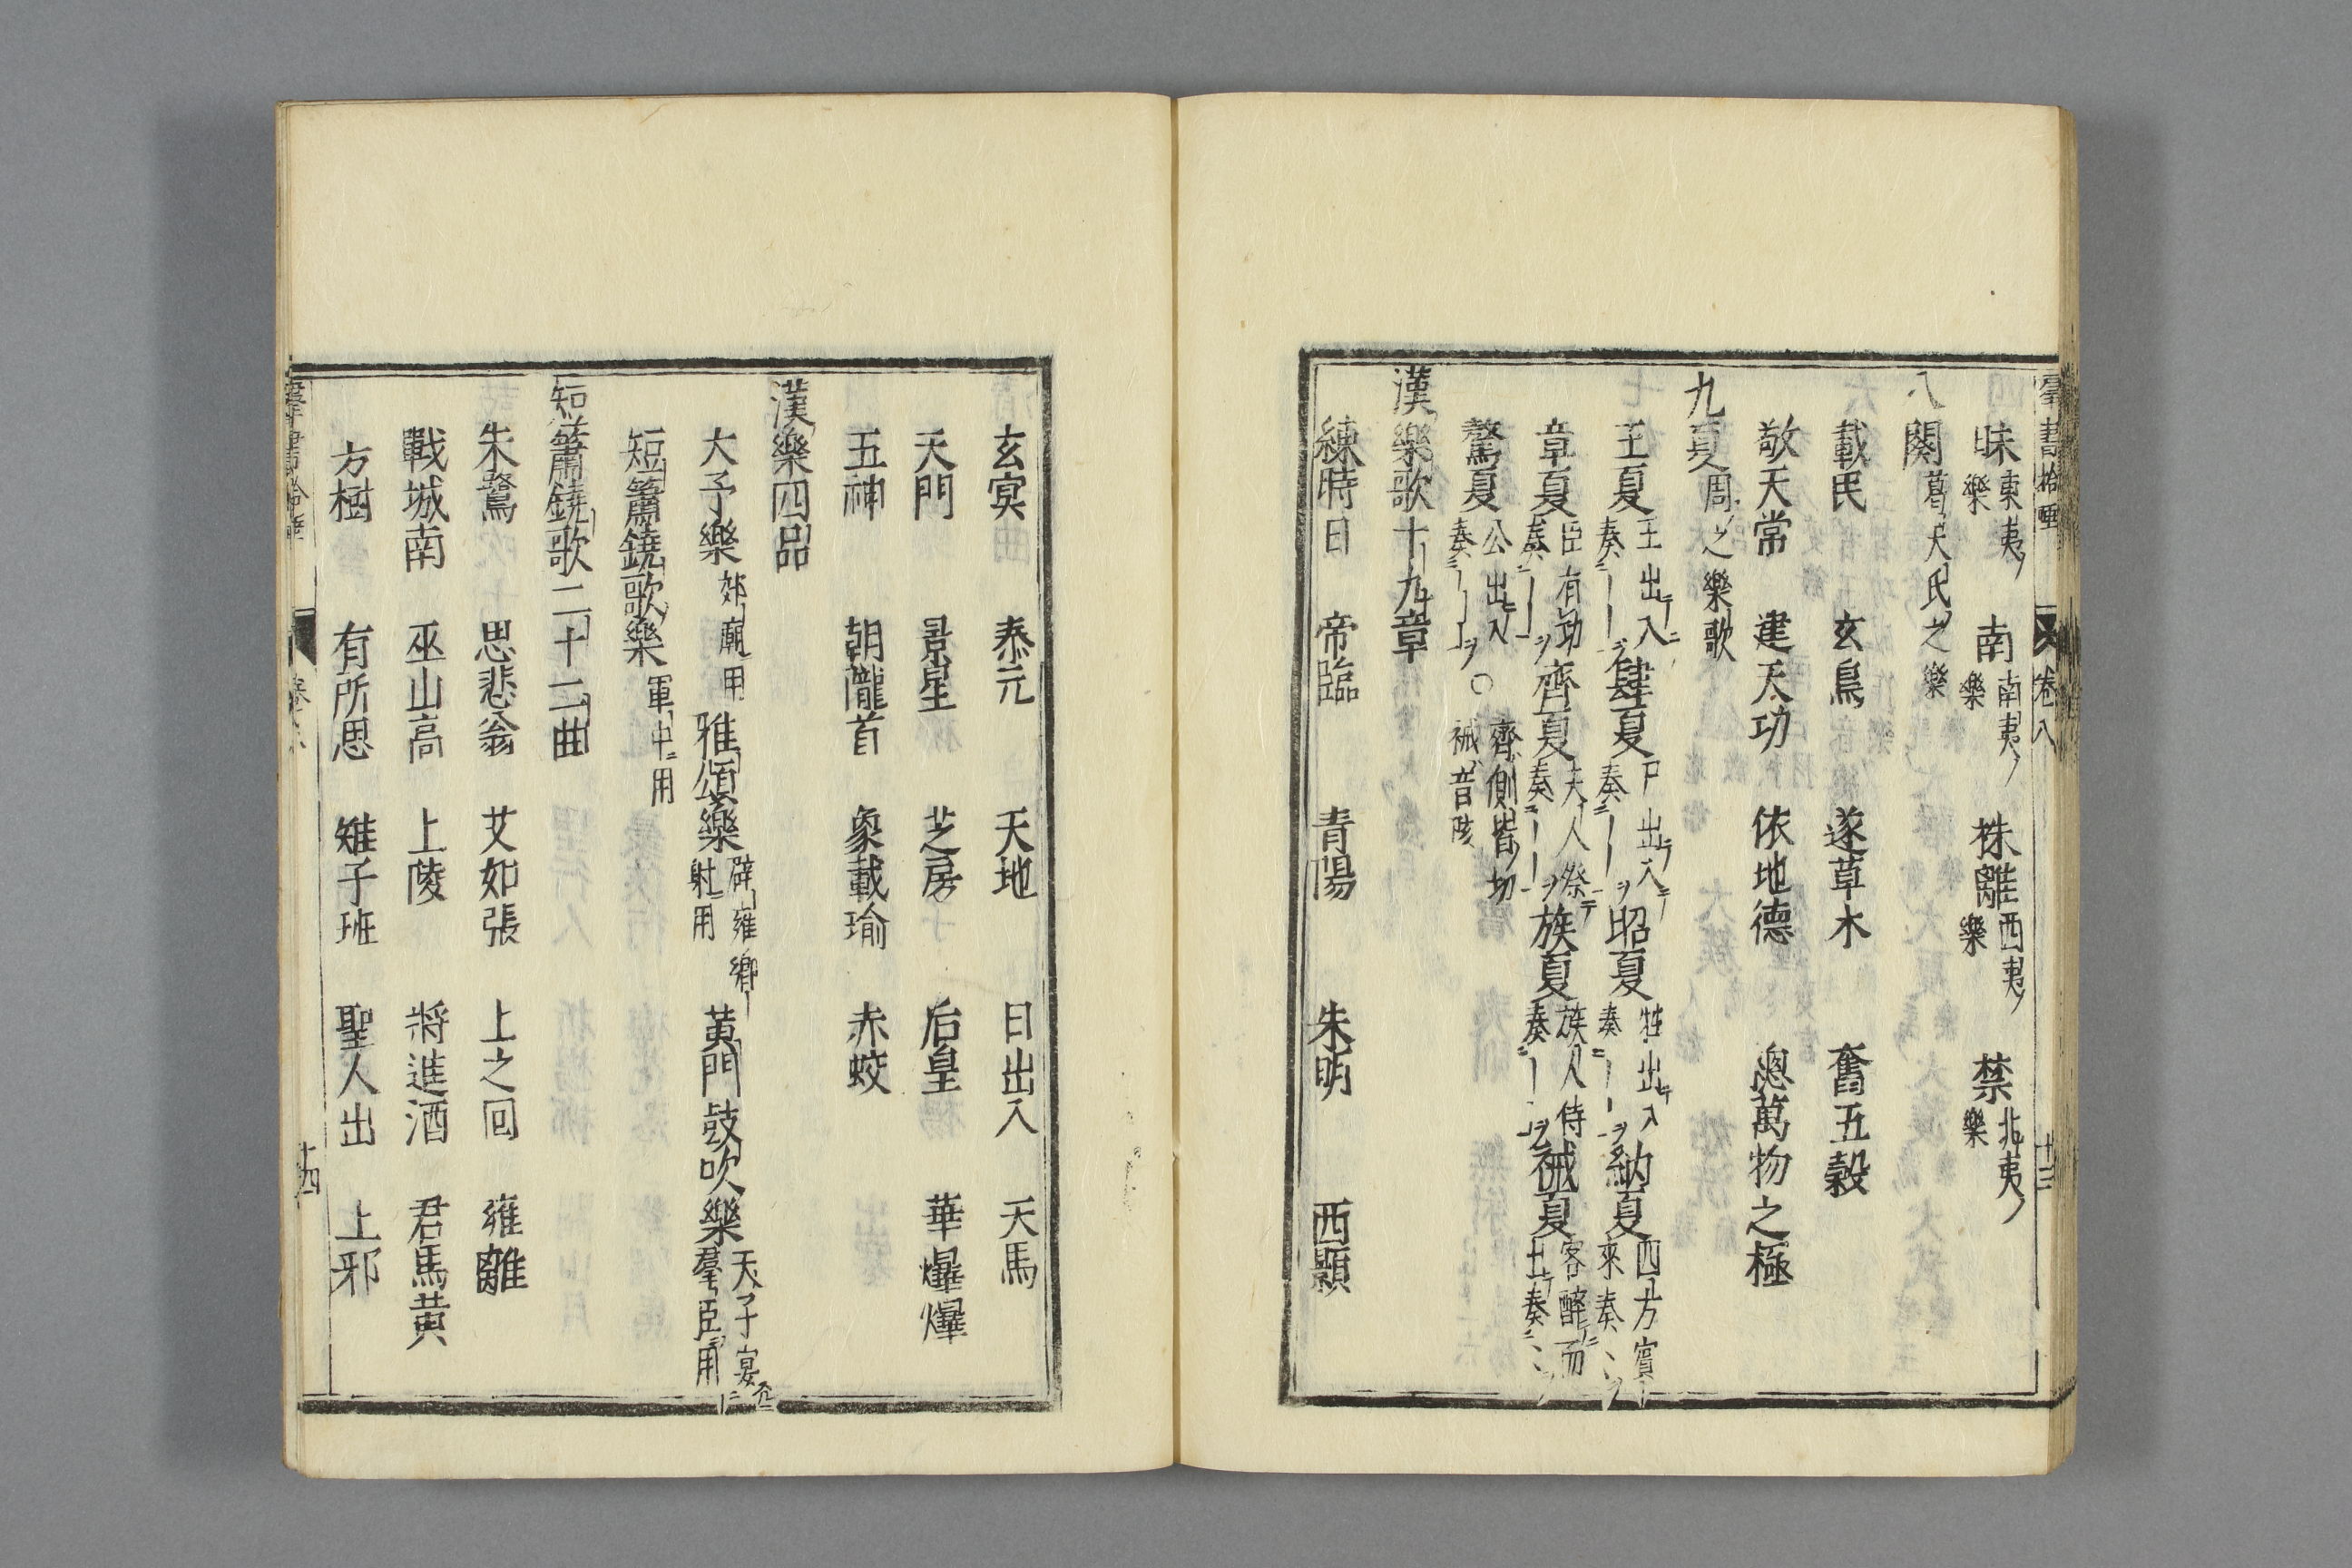 羣書拾唾 卷八 十三
昧東夷樂 南南夷樂 株離西夷樂 禁北夷樂
八闋葛天氏之樂
載民 玄鳥 遂草木 奮五穀
敬天常 建天功 依地德 總萬物之極
九夏周之樂歌
王夏王出入奏——ヲ肆夏尸出入奏——ヲ昭夏牲出入奏——ヲ納夏四方賓來奏〻〻ヲ
章夏臣有功奏——ヲ齊夏夫人祭奏——ヲ族夏族人侍奏——ヲ祴夏客醉而出奏〻〻ヲ
驁夏公出入奏——ヲ○齊側皆切祴音陔
漢樂歌十九章
練時日 帝臨 青陽 朱明 西顥
玄冥 泰元 天地 日出入 天馬
天門 景星 芝房 后皇 華爗爗
五神 朝隴首 象載瑜 赤蛟
漢樂四品
大予樂郊廟用 雅頌樂辟雍鄉射用 黃門鼓吹樂天子宴羣臣用
短簫鐃歌樂軍中用
短簫鐃歌二十二曲
朱鷺 思悲翁 艾如張 上之回 雍離
戰城南 巫山高 上陵 將進酒 君馬黃
方樹 有所思 雉子班 聖人出 上邪
十四